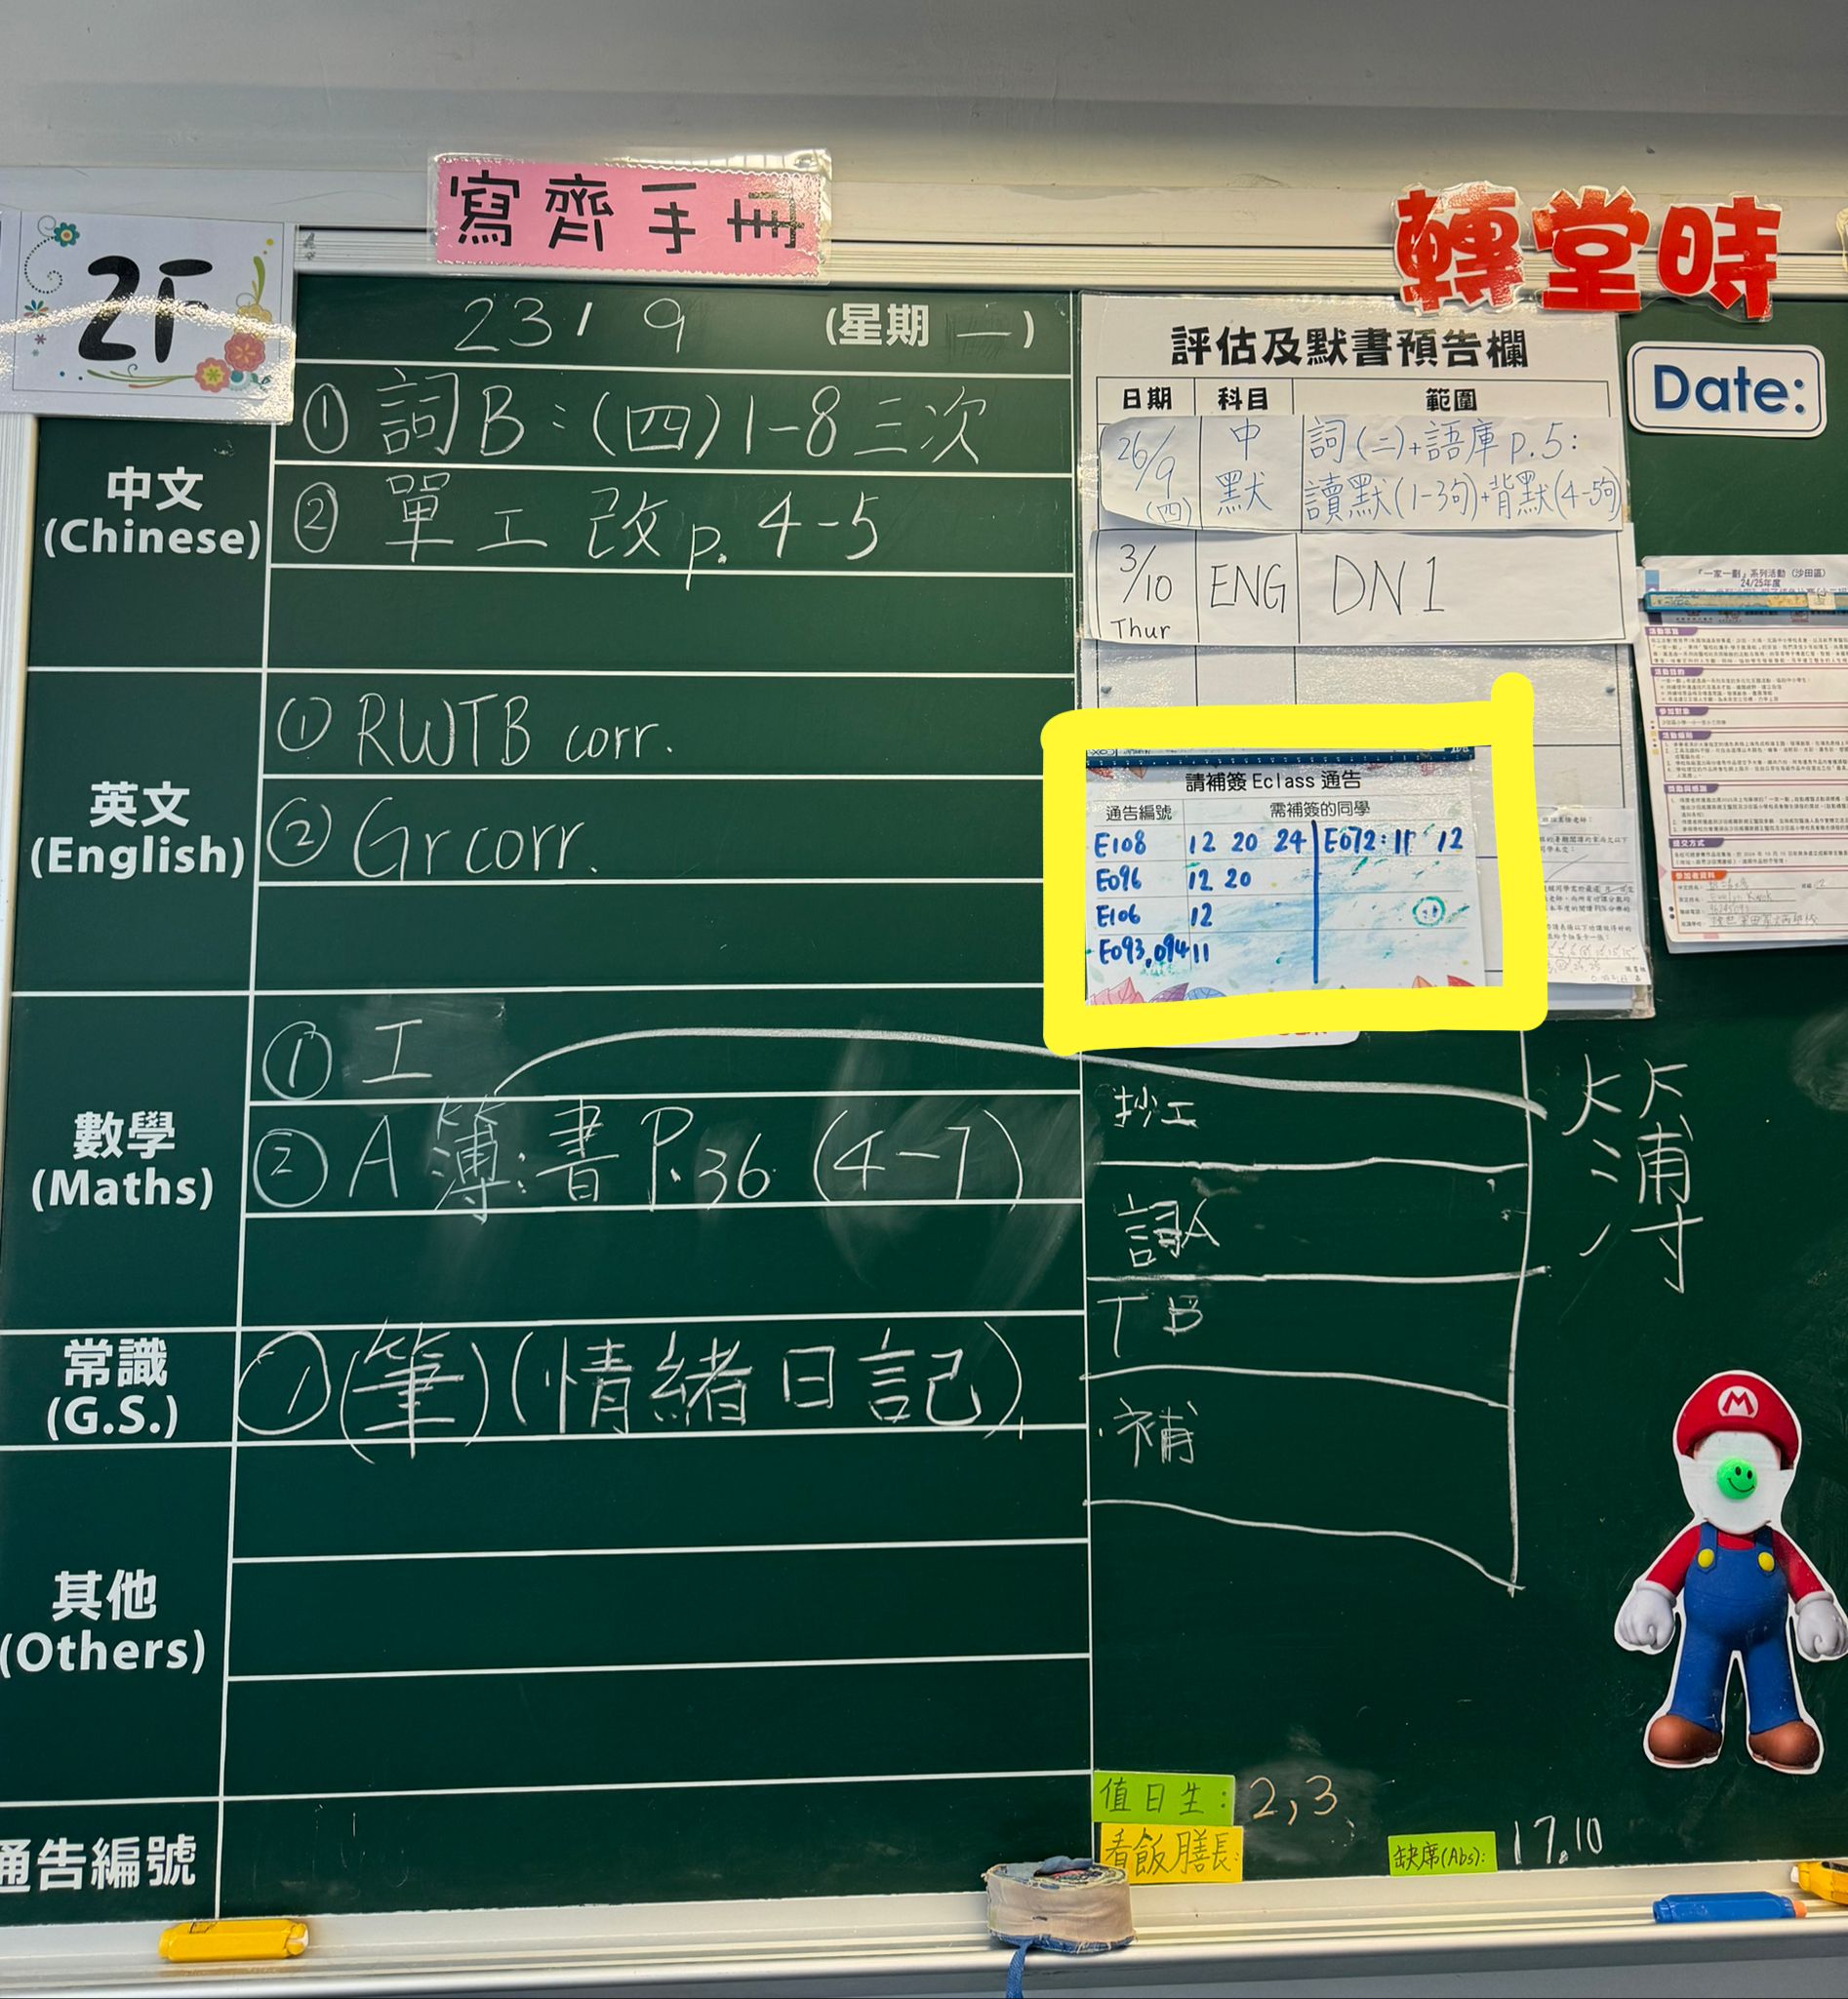 寫齊手冊
轉堂時
2F
23/9 (星期一)
中文
(Chinese)
① 詞B：(四)1-8三次
② 單工改p.4-5
英文
(English)
① RWTB corr.
② Gr corr.
數學
(Maths)
① 工
② A簿：書P.36 (4-7)
常識
(G.S.)
① (筆)(情緒日記)
其他
(Others)
通告編號
評估及默書預告欄
日期 科目 範圍
26/9 (四) 中默 詞(二)+語庫p.5:
讀默(1-3句)+背默(4-5句)
3/10 Thur ENG DN1
請補簽Eclass通告
通告編號 需補簽的同學
E108 12 20 24 E072: 11 12
E096 12 20
E106 12
E093,094 11
抄工
詞A
TB
補
簿
值日生: 2,3
看飯膳長:
缺席(Abs): 17.10
Date:
「一家一劃」系列活動（沙田區）
24/25年度
活動目的
參加對象
提交方式
參加者資料
M